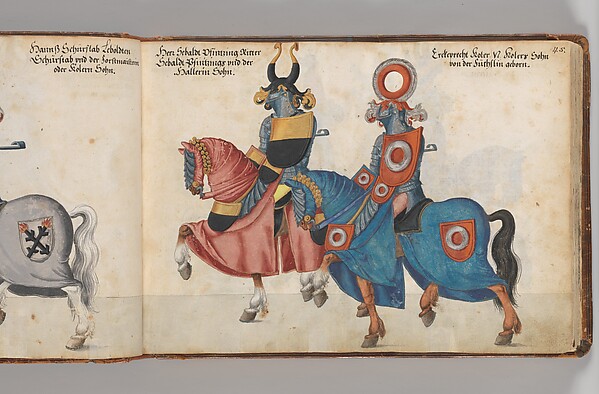 Hannß Schürstab Lebolden
Schürstab vnd der Forstmaisterin
oder Kolerin Sohn.
Herr Sebaldt Pfintzing Ritter
Sebaldt Pfintzings vnd der
Hallerin Sohn.
45.
Erckeprecht Koler
Kolers Sohn
von der Füchslin geborn.